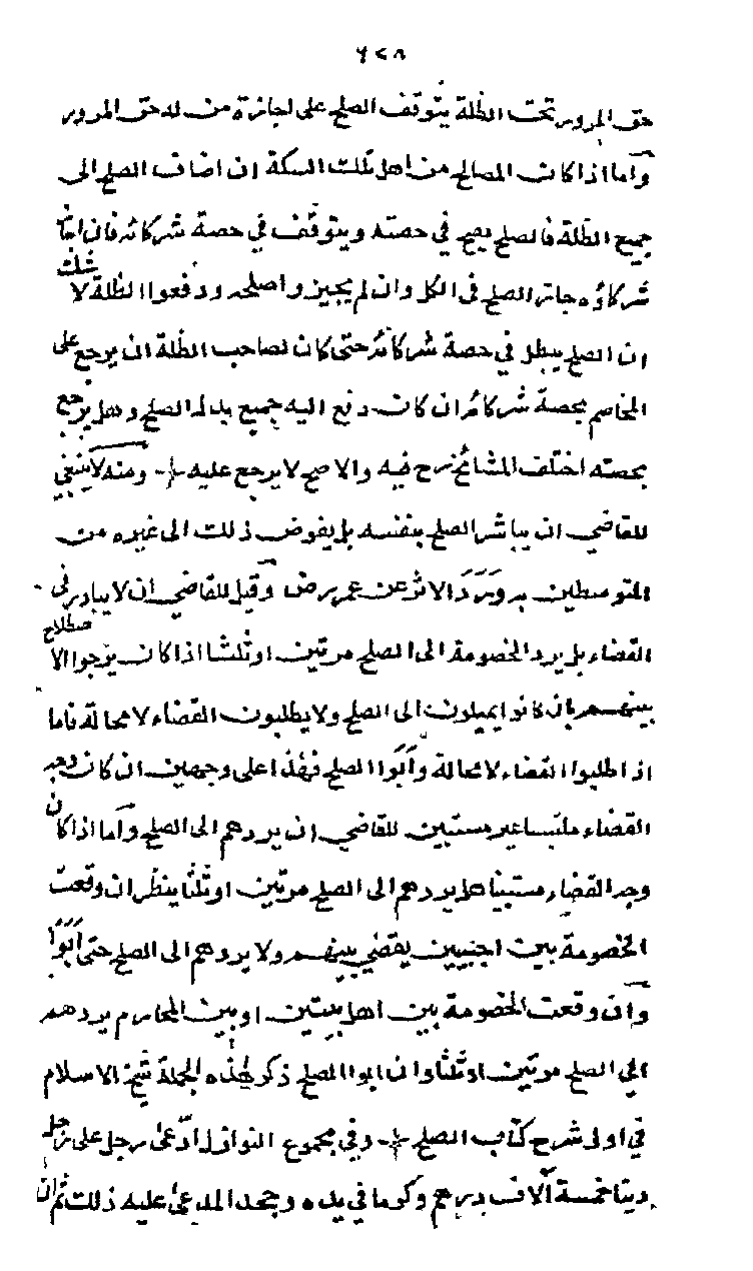 ٦٢٨
حق المرور تحت الظلة يتوقف الصلح على اجازة من له حق المرور
وأما اذا كان المصالح من اهل تلك السكة ان اضاف الصلح الى
جميع الظلة فالصلح يصح في حصته ويتوقف في حصة شركائه فان اجاز
شركاؤه جاز الصلح في الكل وان لم يجيز واصلحه ودفعوا الظلة لا شك
ان الصلح يبطل في حصة شركائه حتى كان لصاحب الظلة ان يرجع على
المخاصم بحصة شركائه ان كان دفع اليه جميع بدل الصلح وهل يرجع
بحصته اختلف المشائخ رح فيه والاصح لا يرجع عليه ومنه لا ينبغي
للقاضي ان يباشر الصلح بنفسه بل يفوض ذلك الى غيره من
المتوسطين به ورد الاثر عن عمر رض وقيل للقاضي ان لا يبادر في
القضاء بل يرد الخصومة الى الصلح مرتين او ثلثا اذا كان يرجوا الاصطلاح
بينهم بان كانوا يميلون الى الصلح ولا يطلبون القضاء لا محالة فاما
اذا طلبوا القضاء لا محالة وأبوا الصلح فهذا على وجهين ان كان وجه
القضاء ملتبسا غير مستبين للقاضي ان يردهم الى الصلح وأما اذا كان
وجه القضاء مستبينا هل يردهم الى الصلح مرتين او ثلثا ينظر ان وقعت
الخصومة بين اجنبيين يقضي بينهم ولا يردهم الى الصلح حتى أبوا
وان وقعت الخصومة بين اهل بيتين او بين المحارم يردهم
الى الصلح مرتين او ثلثا وان ابوا الصلح ذكر هذه الجملة شيخ الاسلام
في اول شرح كتاب الصلح وفي مجموع النوازل ادعى رجل على رجل
دينا خمسة آلاف درهم وكوما في يده وجحد المدعى عليه ذلك ثم ان